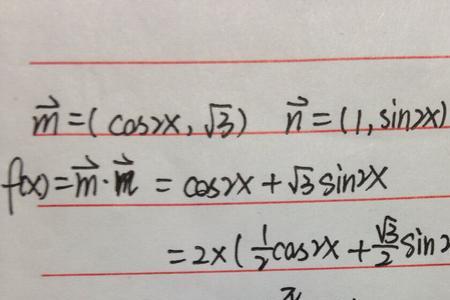 m⃗=(cos2x,√3) n⃗=(1,sin2x)
f(x)=m⃗·m⃗=cos2x+√3sin2x
=2×(1/2cos2x+√3/2sin2